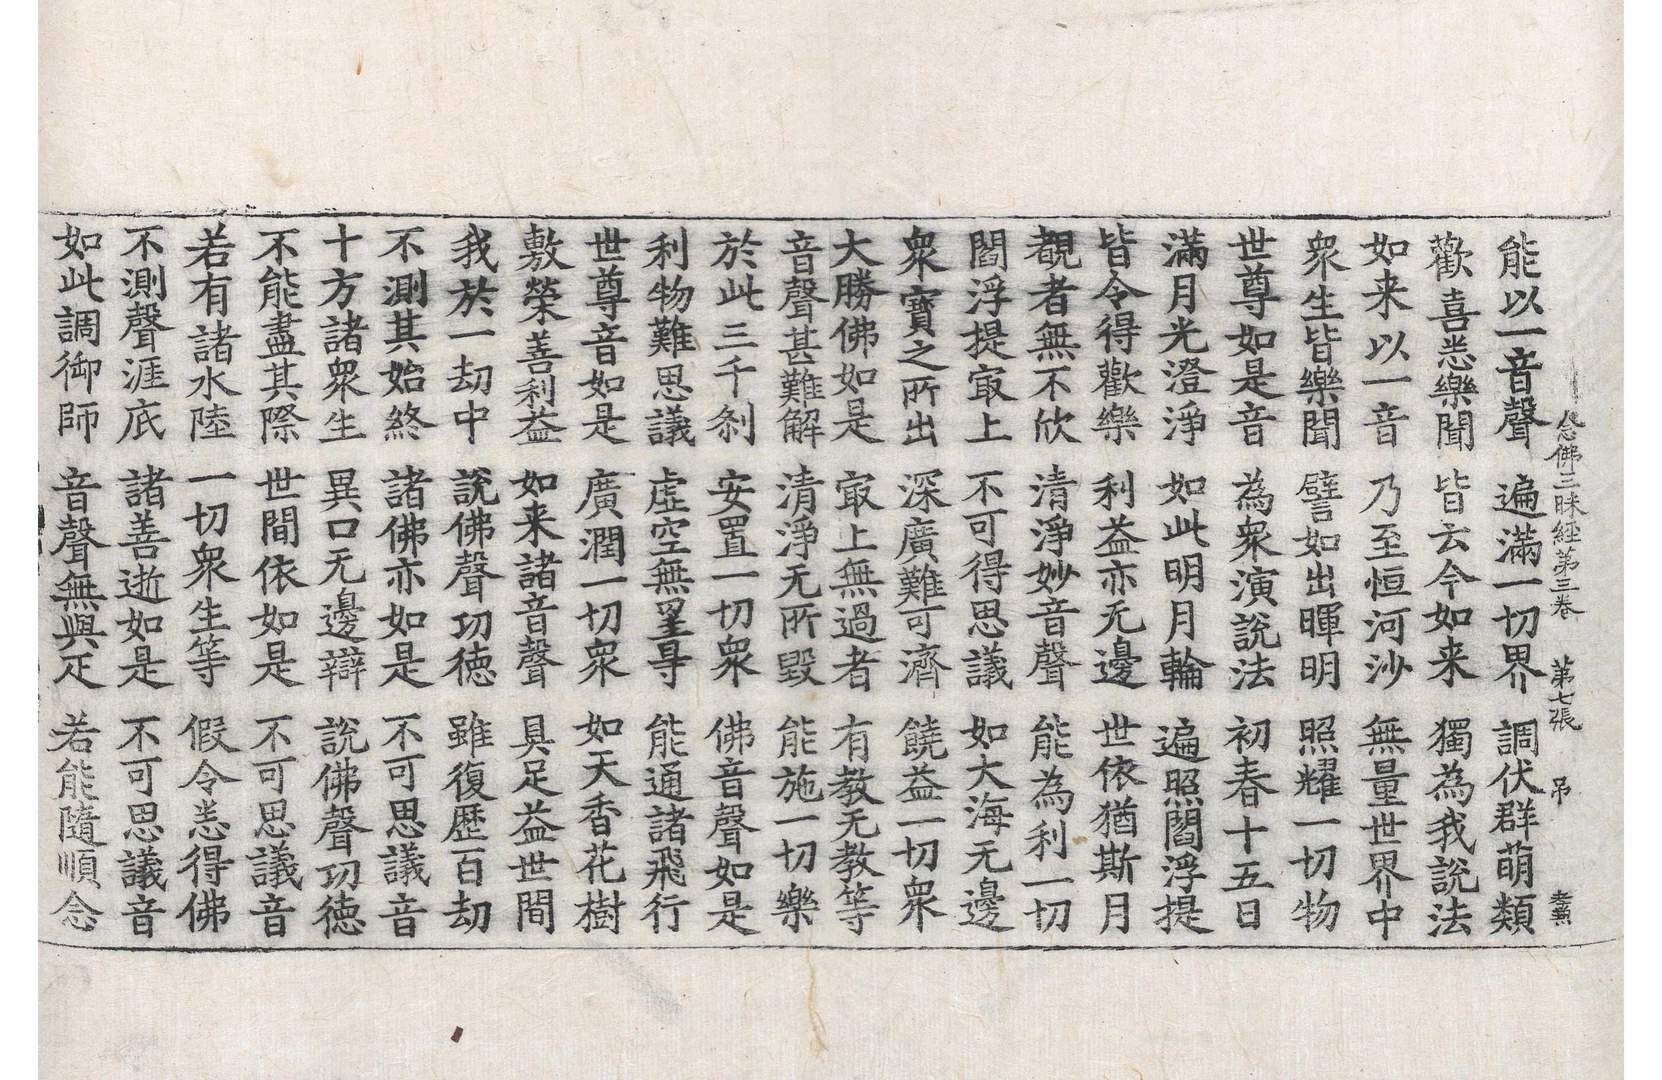 念佛三昧經第三卷 第七張 吊
能以一音聲 遍滿一切界 調伏群萌類
歡喜悉樂聞 皆云今如来 獨為我說法
如来以一音 乃至恒河沙 無量世界中
衆生皆樂聞 譬如出暉明 照耀一切物
世尊如是音 為衆演說法 初春十五日
滿月光澄淨 如此明月輪 遍照閻浮提
皆令得歡樂 利益亦无邊 世依猶斯月
覩者無不欣 清淨妙音聲 能為利一切
閻浮提㝡上 不可得思議 如大海无邊
衆寶之所出 深廣難可濟 饒益一切衆
大勝佛如是 㝡上無過者 有教无教等
音聲甚難解 清淨无所毀 能施一切樂
於此三千剎 安置一切衆 佛音聲如是
利物難思議 虛空無罣㝵 能通諸飛行
世尊音如是 廣潤一切衆 如天香花樹
敷榮善利益 如来諸音聲 具足益世間
我於一劫中 說佛聲功德 雖復歷百劫
不測其始終 諸佛亦如是 不可思議音
十方諸衆生 異口无邊辯 說佛聲功德
不能盡其際 世間依如是 不可思議音
若有諸水陸 一切衆生等 假令悉得佛
不測聲涯底 諸善逝如是 不可思議音
如此調御師 音聲無與疋 若能隨順念